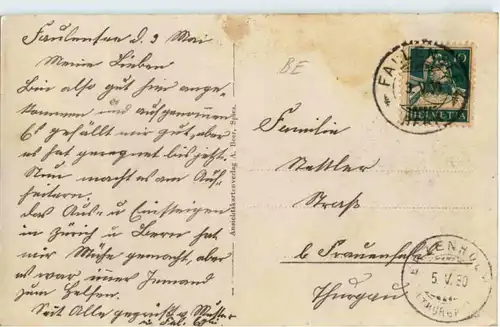 Faulensee d. 3 Mai
Meine Lieben
Bin also gut hier ange-
kommen und aufgenommen
Es gefällt mir gut, aber
es hat geregnet bis jetzt.
Nun macht es am Auf-
heitern.
Das Aus- u Einsteigen
in Zürich u Bern hat
mir Mühe gemacht, aber
es war immer Jemand
zum helfen.
Seit Alle gegrüsst v. Mutter
u.
Ansichtskartenverlag A. Beer, Spiez.
BE
Familie
Stettler
Straß
b Frauenfeld
Thurgau
10
HELVETIA
5. V. 30
(THURGAU)